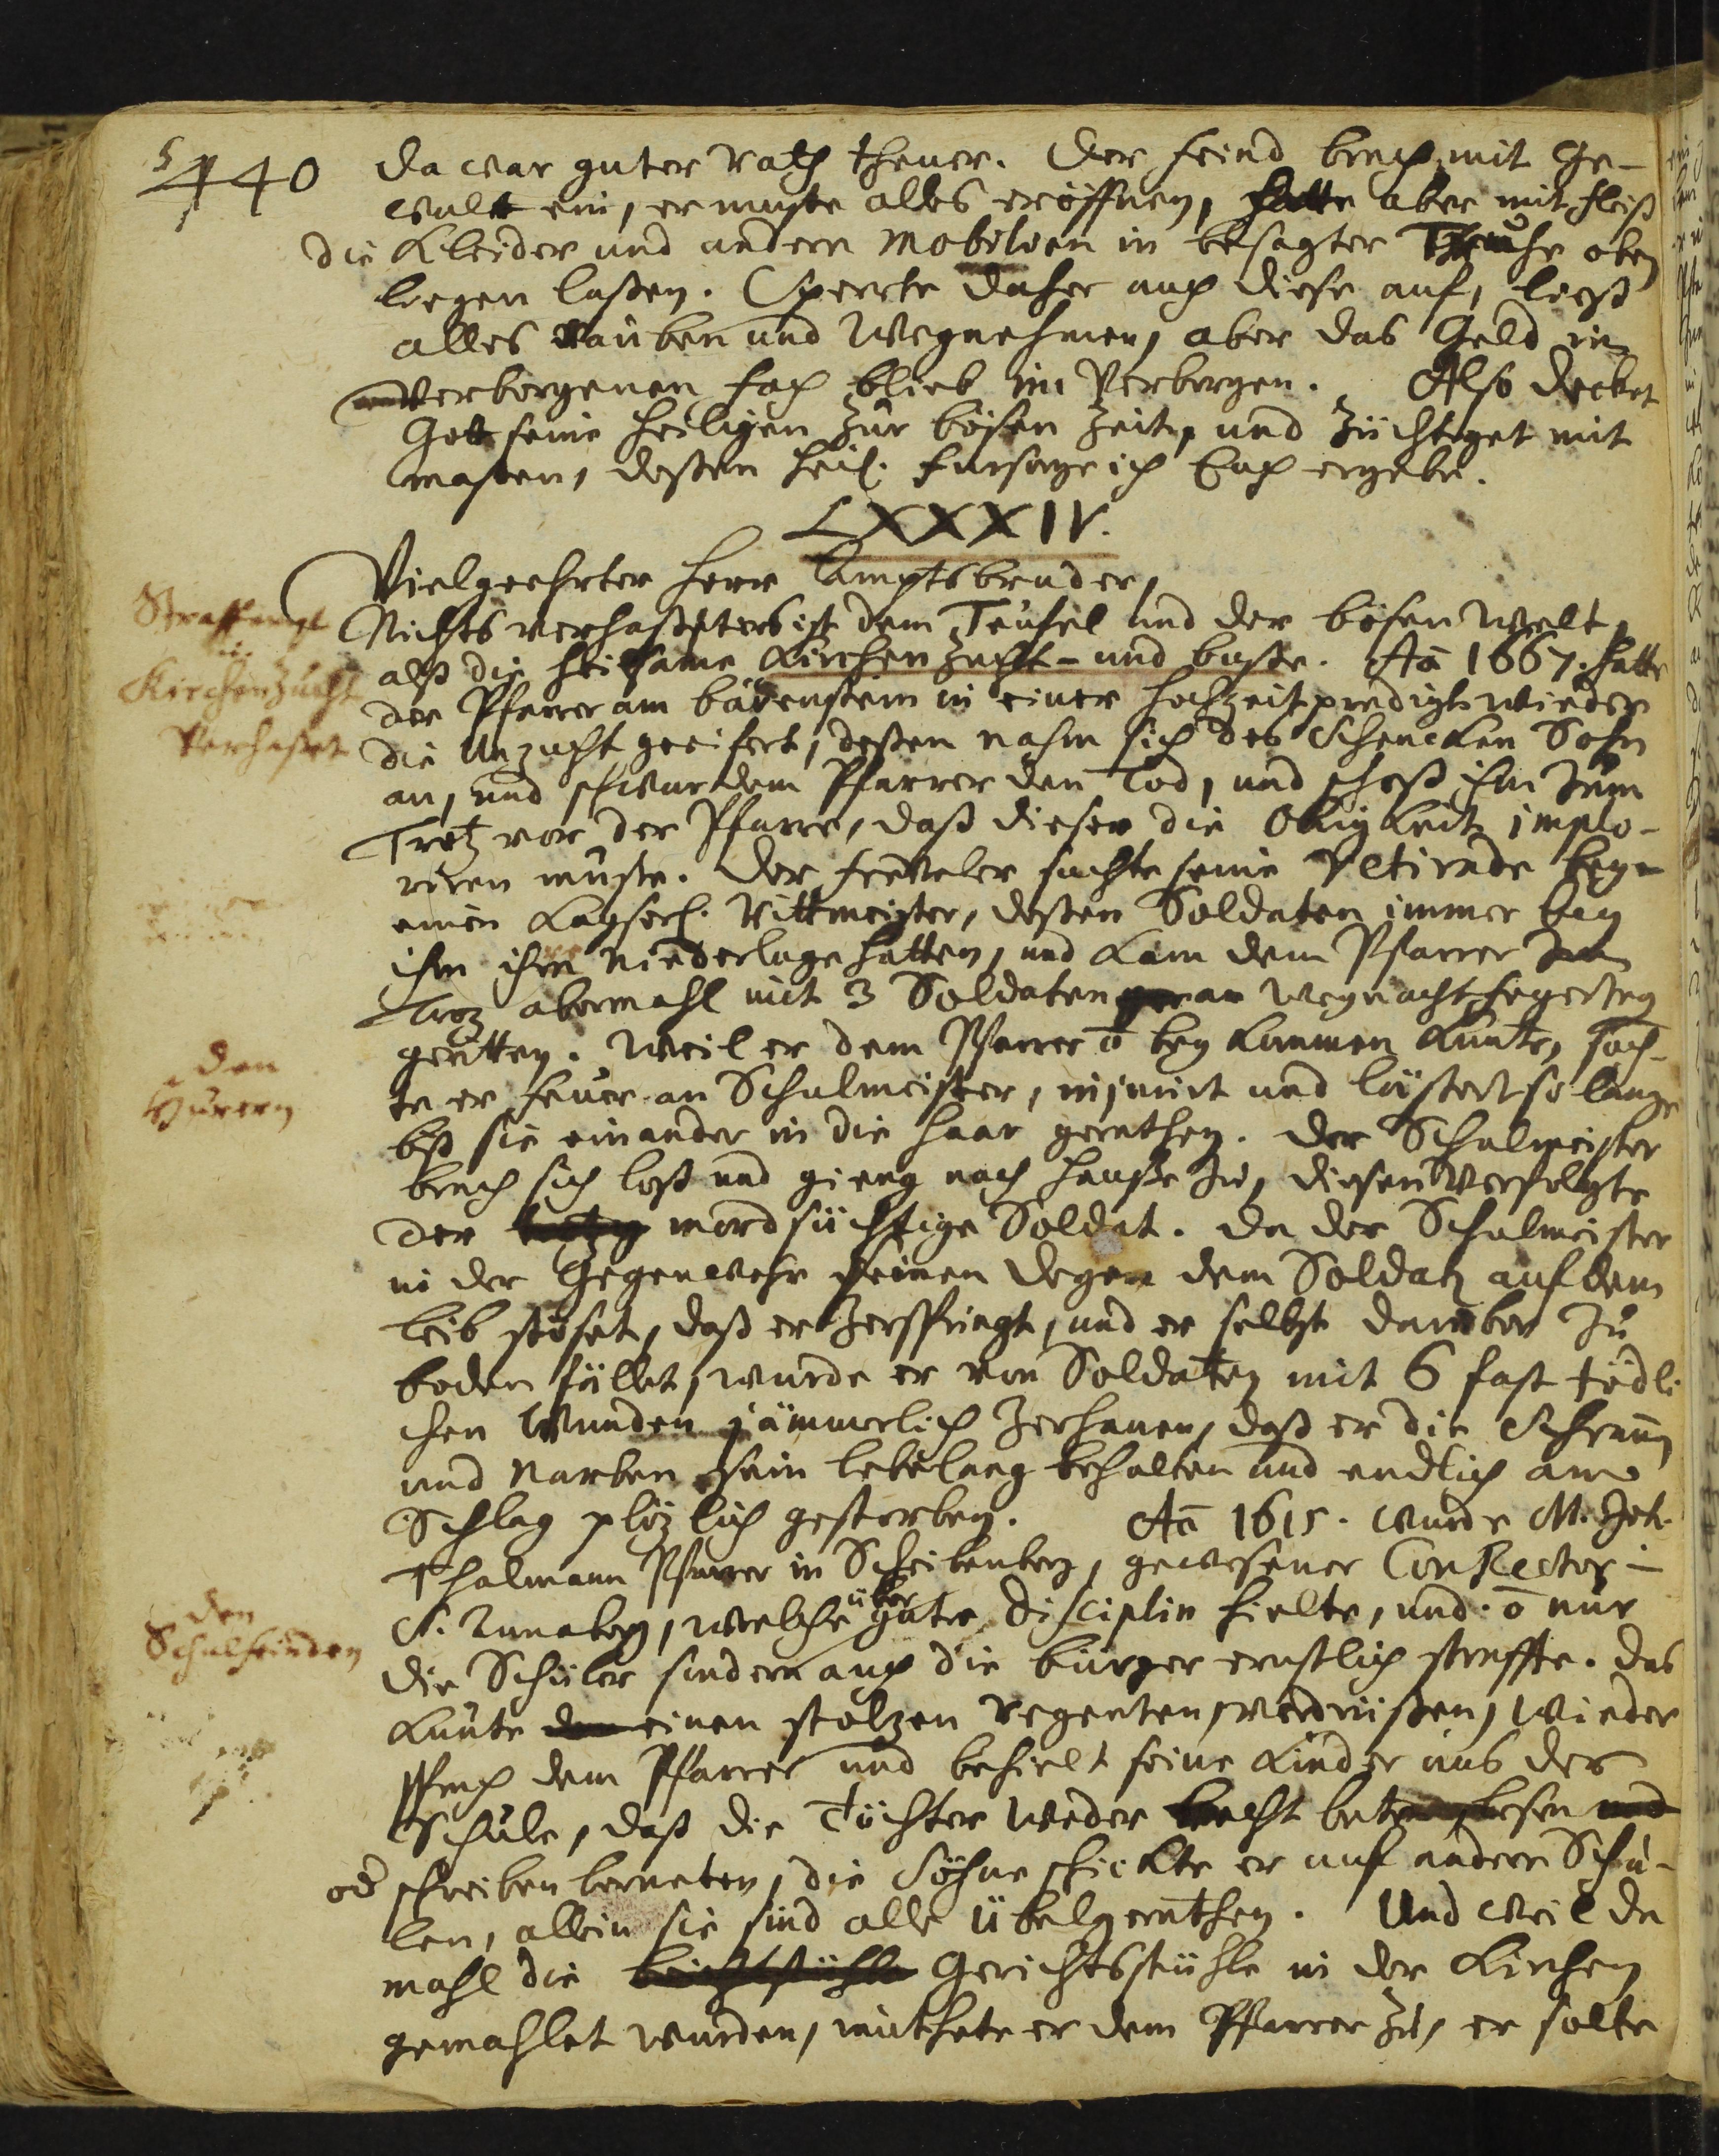 440
da war guter rath theuer. Der feind brach mit Ge-
walt ein, er muste alles eröffnen, hatte aber mit fleiß
die Kleider und andere Mobilien in besagter Truhe oben
liegen laßen. Sperrte daher auch diese auf, ließ
alles rauben und wegnehmen, aber das Geld in
verborgenen fach blieb im Verborgen. Also decket
Gott seine heiligen zur bösen Zeit, und züchtiget mit
maßen, deßen heil. fursorge ich Euch ergebe.
LXXXIV.
Vielgeehrter Herr Amptsbruder,
Nichts verhaßeters ist dem Teufel und der bösen Welt,
alß die heilsame Kirchenzucht- und buße. Aõ 1667. hatte
der Pfarrer am bärenstein in einer hochzeitpredigt wieder
die Unzucht geeifert, deßen nahm sich des Schencken Sohn
an, und schwur dem Pfarrer den Tod, und schoß ihm zum
Trotz vor der Pfarre, daß dieser die Obrigkeit implo-
riren muste. Der freveler suchte seine Retirade bey
einen Kayserl. Rittmeister, deßen Soldaten immer bey
ihm ihre Niederlage hatten, und kam dem Pfarrer zum
Troz abermahl mit 3 Soldaten
geritten. Weil er dem Pfarrer õ bey kommen kunte, such-
te er feuer an Schulmeister, injurirt und lästert so lange
biß sie einander in die haar gerathen. Der Schulmeister
brach sich loß und gieng nach hauße zu, diesen verfolgte
der mordsüchtige Soldat. Da der Schulmeister
in der Gegenwehr seinen Degen dem Soldaten auf dem
leib stöset, daß er zerspringt, und er selbst darüber zu
boden fället, wurde er von Soldaten mit 6 fast tödli-
chen Wunden jämmerlich zerhauen, daß er die Schram
und Narben sein lebelang behalten und endlich am
Schlag plözlich gestorben. Aõ 1615. wurde M. Joh.
Thalmann Pfarrer in Scheibenberg, gewesener ConRector i
S. Annaberg, welcher über gute Disciplin hielte, und õ nur
die Schüler sondern auch die bürger ernstlich straffte. Das
kunte einen stolzen Regenten verdrüßen, wieder
sprach dem Pfarrer und behielt seine Kinder aus der
Schule, daß die Töchter weder recht beten lesen
od schreiben lerneten, die Söhne schickte er auf andere Schu-
len, allein sie sind alle übelgerathen. Und weil da
mahl die Gerichtsstühle in der Kirchen
gemahlet wurden, muthete er dem Pfarrer zu, er solte
Straffampt
u.
Kirchenzucht
Verhaßet
den
Hurern
den
Schulfeinden